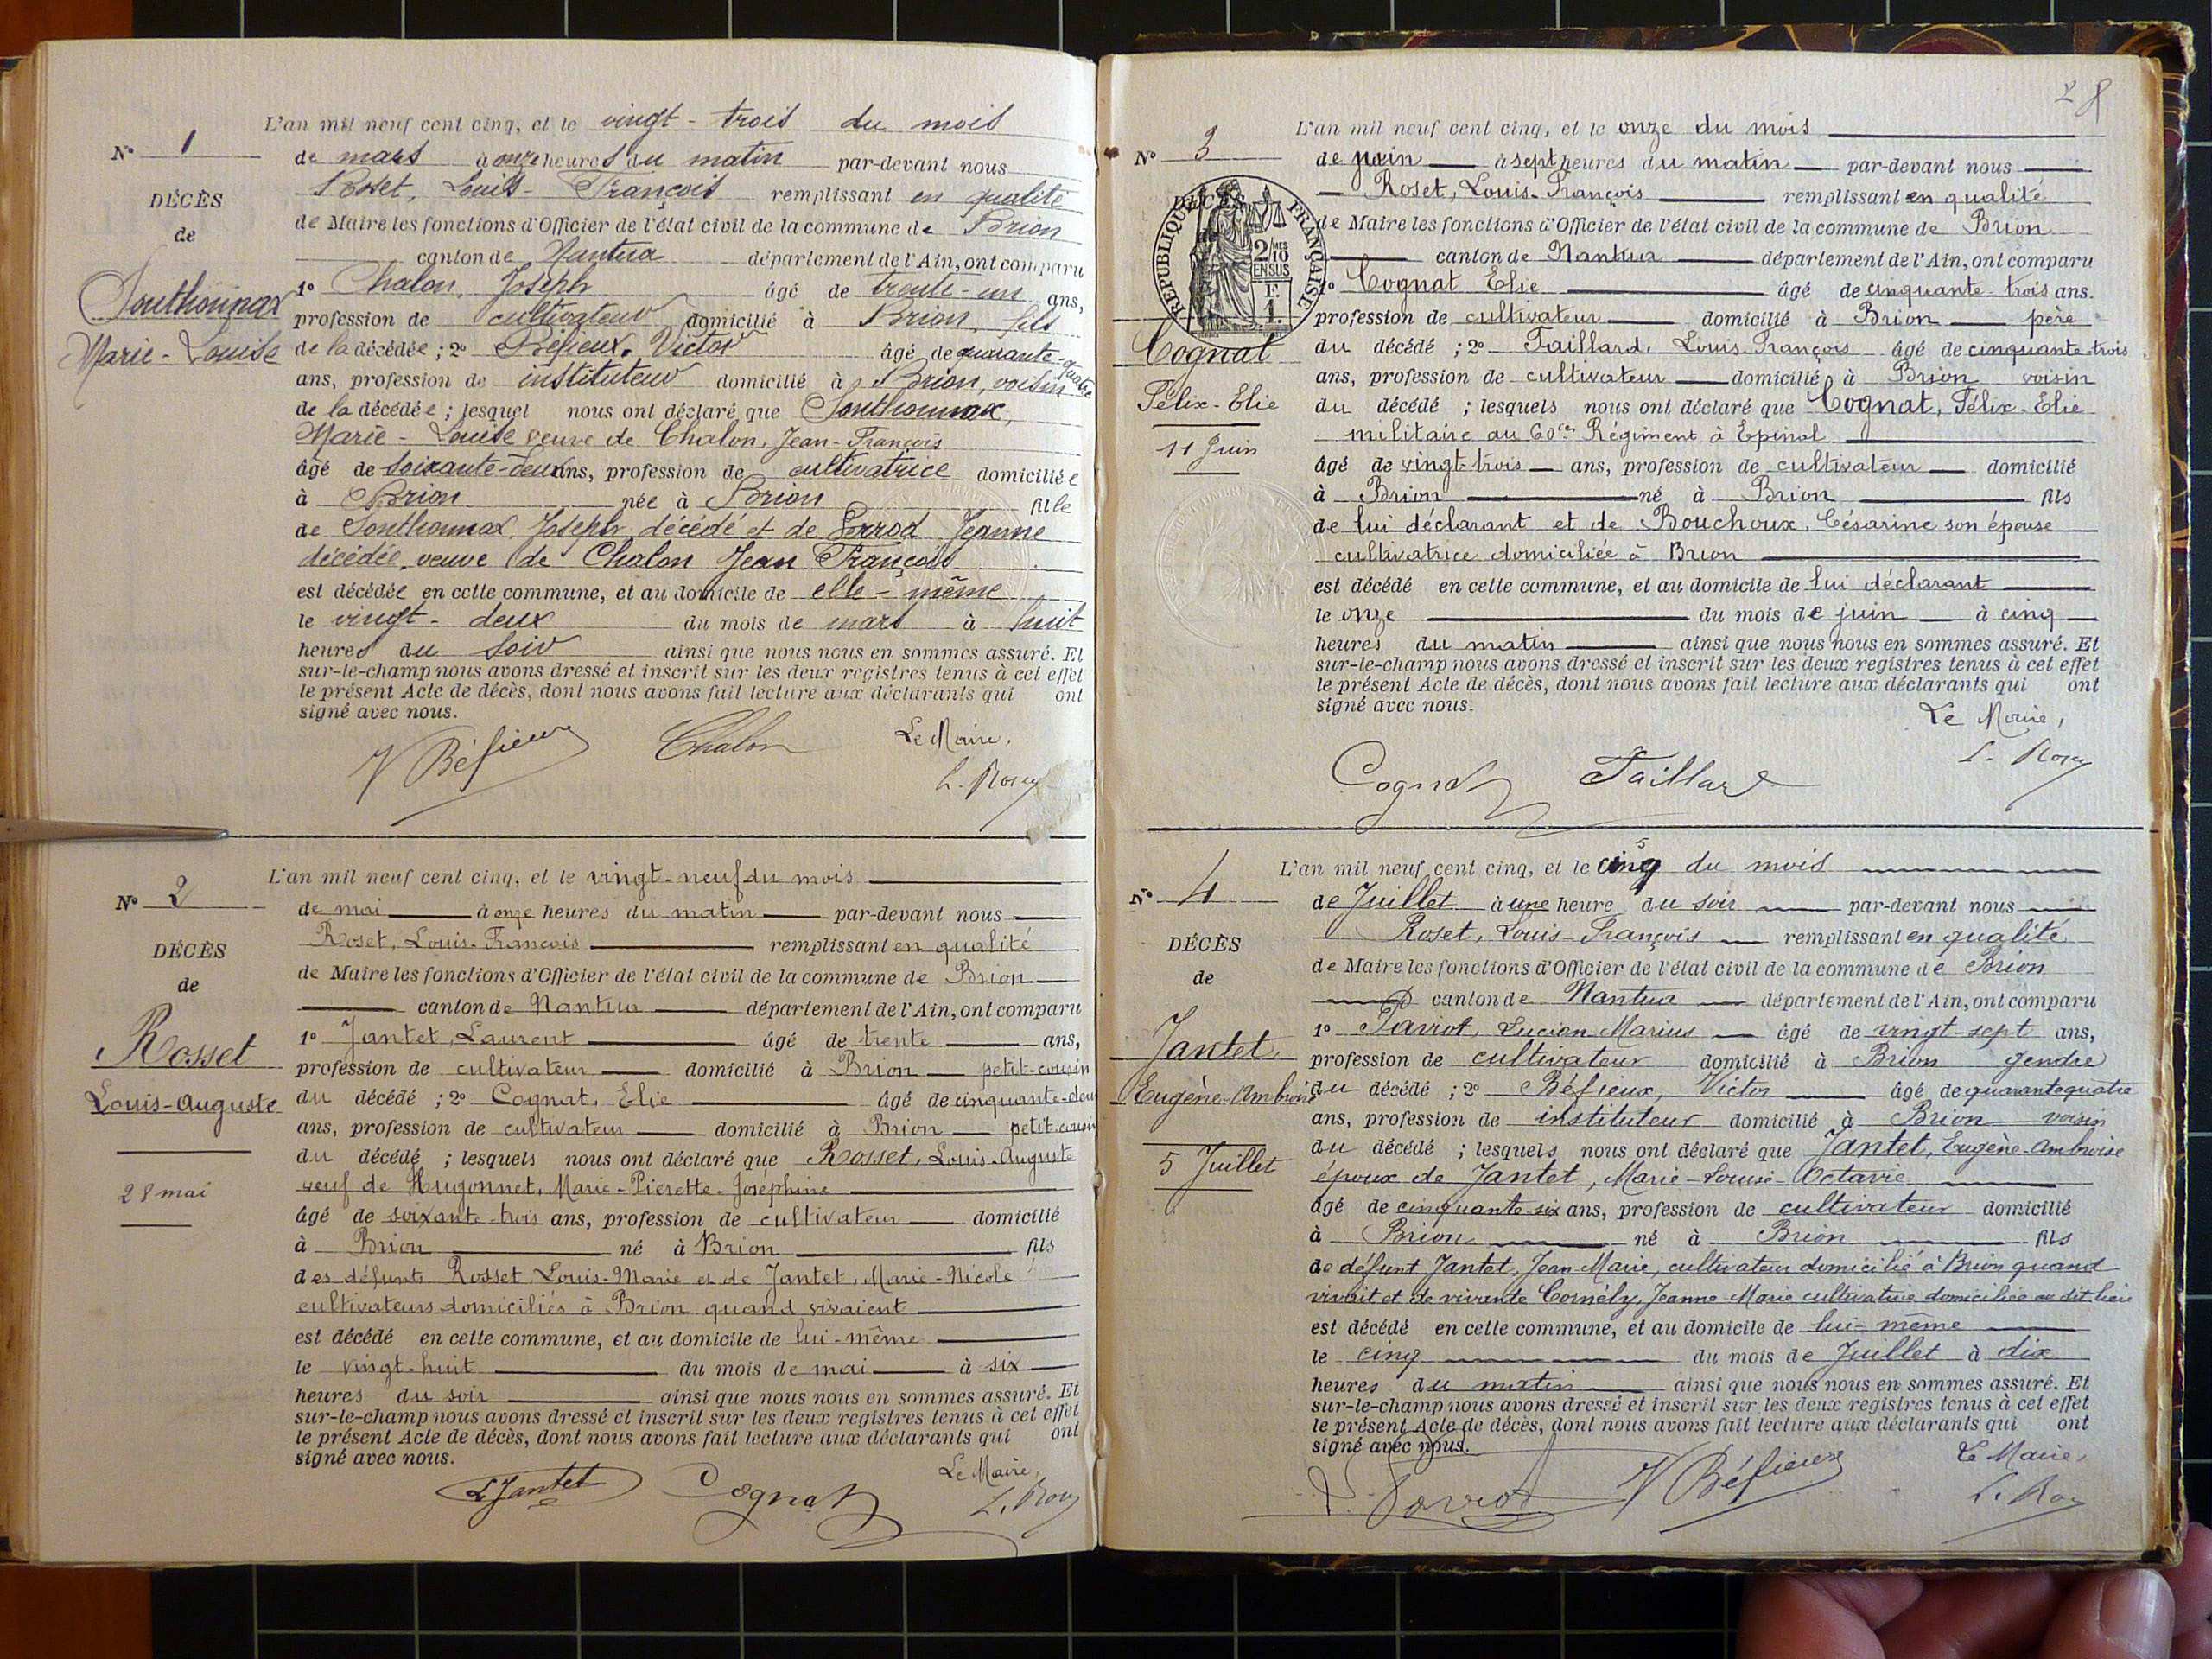 L'an mil neuf cent cinq, et le vingt-trois du mois
N° 1
de mars à onze heures du matin par-devant nous
DÉCÈS
Roset, Louis-François remplissant en qualité
de
de Maire les fonctions d'Officier de l'état civil de la commune de Brion
canton de Nantua département de l'Ain, ont comparu
Southonnax
Marie-Louise
1° Chalon, Joseph âgé de trente-un ans,
profession de cultivateur domicilié à Brion, fils
de la décédée ; 2° Béfieux, Victor âgé de quarante-quatre
ans, profession de instituteur domicilié à Brion, voisin
de la décédée ; lesquel nous ont déclaré que Southonnax,
Marie-Louise veuve de Chalon, Jean-François
âgé de soixante-deux ans, profession de cultivatrice domiciliée
à Brion née à Brion fille
de Southonnax Joseph décédé et de Jeanne
décédée, veuve de Chalon Jean François
est décédée en cette commune, et au domicile de elle-même
le vingt-deux du mois de mars à huit
heures du soir ainsi que nous nous en sommes assuré. Et
sur-le-champ nous avons dressé et inscrit sur les deux registres tenus à cet effet
le présent Acte de décès, dont nous avons fait lecture aux déclarants qui ont
signé avec nous.
V Béfieux Chalon Le Maire,
L. Roset
L'an mil neuf cent cinq, et le vingt-neuf du mois
N° 2
de mai à onze heures du matin par-devant nous
DÉCÈS
Roset, Louis-François remplissant en qualité
de
de Maire les fonctions d'Officier de l'état civil de la commune de Brion
canton de Nantua département de l'Ain, ont comparu
Rosset
Louis-Auguste
28 mai
1° Jantet, Laurent âgé de trente ans,
profession de cultivateur domicilié à Brion petit-cousin
du décédé ; 2° Cognat, Elie âgé de cinquante-deux
ans, profession de cultivateur domicilié à Brion petit-cousin
du décédé ; lesquels nous ont déclaré que Rosset, Louis-Auguste
veuf de Hugonnet, Marie-Pierette-Joséphine
âgé de soixante-trois ans, profession de cultivateur domicilié
à Brion né à Brion fils
des défunts Rosset Louis-Marie et de Jantet, Marie-Nicole
cultivateurs domiciliés à Brion quand vivaient
est décédé en cette commune, et au domicile de lui-même
le vingt-huit du mois de mai à six
heures du soir ainsi que nous nous en sommes assuré. Et
sur-le-champ nous avons dressé et inscrit sur les deux registres tenus à cet effet
le présent Acte de décès, dont nous avons fait lecture aux déclarants qui ont
signé avec nous.
L Jantet Cognat Le Maire,
L. Roset
28
L'an mil neuf cent cinq, et le onze du mois
N° 3
de juin à sept heures du matin par-devant nous
DÉCÈS
RÉPUBLIQUE FRANÇAISE
2/10 EN SUS
F. 1.
Roset, Louis-François remplissant en qualité
de Maire les fonctions d'Officier de l'état civil de la commune de Brion
canton de Nantua département de l'Ain, ont comparu
Cognat
Félix-Elie
11 Juin
1° Cognat Elie âgé de cinquante-trois ans.
profession de cultivateur domicilié à Brion père
du décédé ; 2° Taillard, Louis-François âgé de cinquante-trois
ans, profession de cultivateur domicilié à Brion voisin
du décédé ; lesquels nous ont déclaré que Cognat, Félix-Elie
militaire au 60me Régiment à Epinal
âgé de vingt-trois ans, profession de cultivateur domicilié
à Brion né à Brion fils
de lui déclarant et de Bouchoux, Césarine son épouse
cultivatrice domiciliée à Brion
est décédé en cette commune, et au domicile de lui déclarant
le onze du mois de juin à cinq
heures du matin ainsi que nous nous en sommes assuré. Et
sur-le-champ nous avons dressé et inscrit sur les deux registres tenus à cet effet
le présent Acte de décès, dont nous avons fait lecture aux déclarants qui ont
signé avec nous.
Le Maire,
Cognat Taillard L. Roset
L'an mil neuf cent cinq, et le cinq du mois
N° 4
de Juillet à une heure du soir par-devant nous
DÉCÈS
Roset, Louis-François remplissant en qualité
de
de Maire les fonctions d'Officier de l'état civil de la commune de Brion
canton de Nantua département de l'Ain, ont comparu
Jantet,
Eugène-Ambroise
5 Juillet
1° Pavriot, Lucien Marius âgé de vingt-sept ans,
profession de cultivateur domicilié à Brion gendre
du décédé ; 2° Béfieux, Victor âgé de quarante quatre
ans, profession de instituteur domicilié à Brion voisin
du décédé ; lesquels nous ont déclaré que Jantet, Eugène-Ambroise
époux de Jantet, Marie-Louise-Octavie
âgé de cinquante-six ans, profession de cultivateur domicilié
à Brion né à Brion fils
de défunt Jantet, Jean-Marie, cultivateur domicilié à Brion quand
vivait et de vivante Cornély, Jeanne-Marie cultivatrice domiciliée au dit lieu
est décédé en cette commune, et au domicile de lui-même
le cinq du mois de Juillet à dix
heures du matin ainsi que nous nous en sommes assuré. Et
sur-le-champ nous avons dressé et inscrit sur les deux registres tenus à cet effet
le présent Acte de décès, dont nous avons fait lecture aux déclarants qui ont
signé avec nous.
V Béfieux Le Maire,
L. Roset